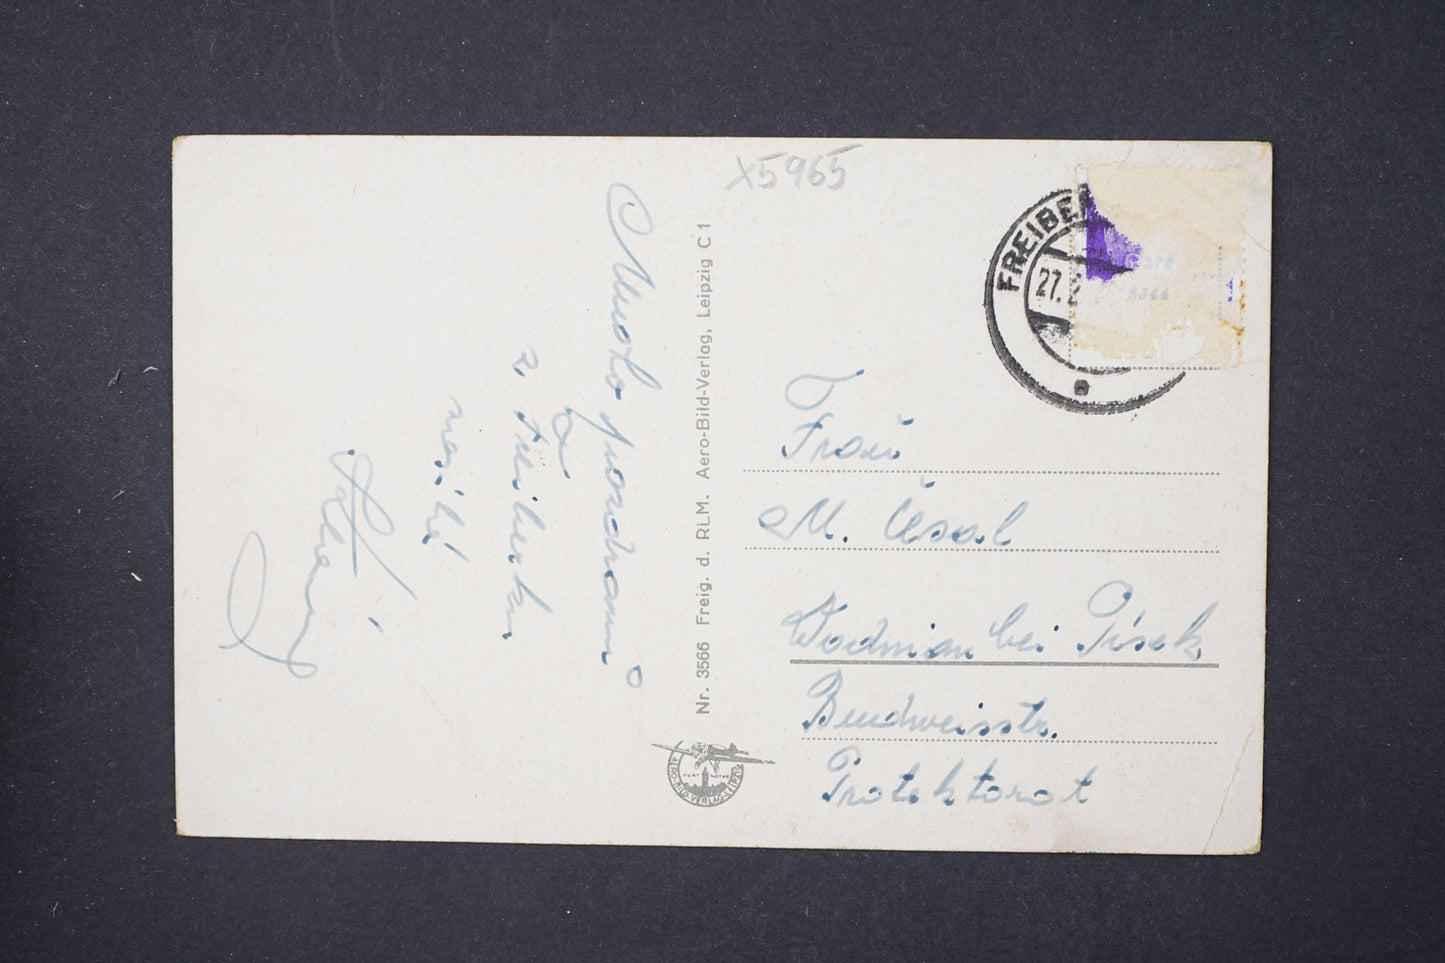 X5965
Mnoho pozdravů
z Freiberku
zasílá
Nr. 3566 Freig. d. RLM. Aero-Bild-Verlag, Leipzig C 1
AERO-BILD-VERLAG-LEIPZIG
FREIBE
27.2
Frau
M. Česal
Wodnian bei Písek
Beudweisstr.
Protektorat